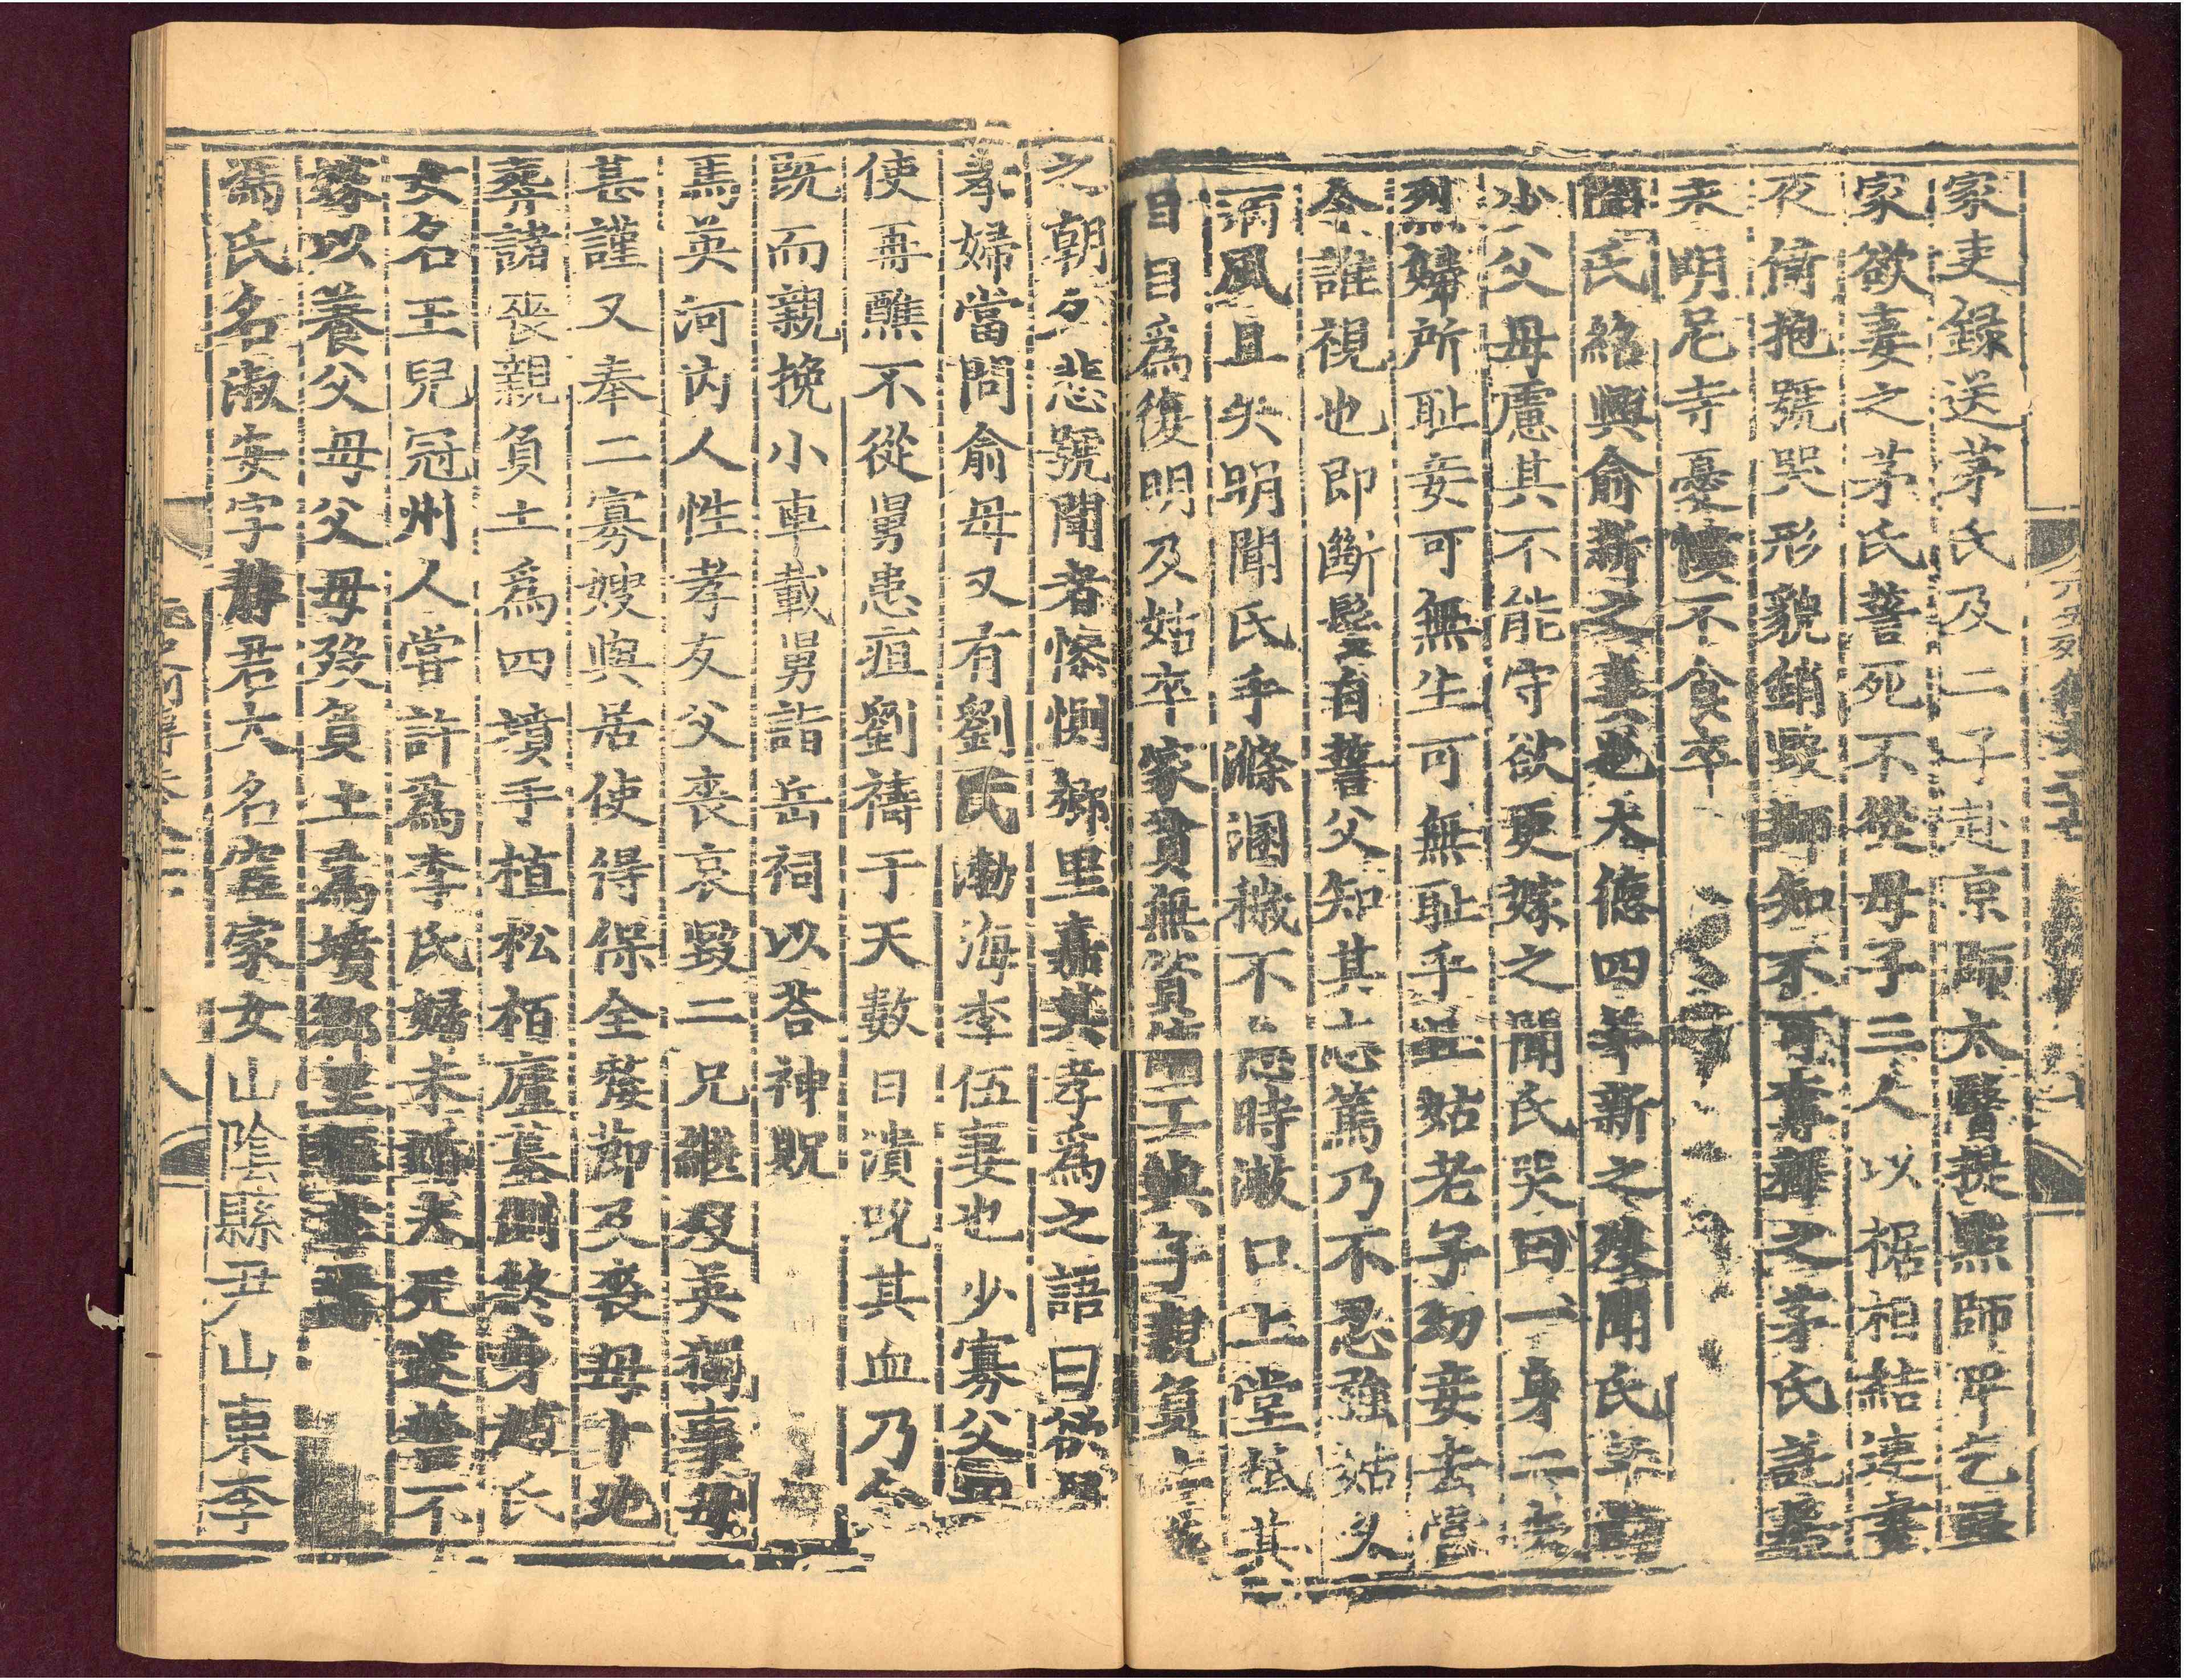 家吏錄送茅氏及二子赴京師太醫提㸃師甲乞歸
家欲妻之茅氏誓死不從母子三人以裾相結連晝
夜倚抱號哭形貌銷毀師知不可奪釋之茅氏託居
永明尼寺憂憤不食卒
聞氏紹興俞新之妻也大德四年新之歿聞氏年尚
少父母慮其不能守欲更嫁之聞氏哭曰一身二夫
烈婦所耻妾可無生可無耻乎且姑老子幼妾去當
令誰視也即斷髮自誓父知其志篤乃不忍強姑久
病風且失明聞氏手滌溷穢不怠時漱口上堂舐其
目目爲復明及姑卒家貧無資傭工與子親負土葬
之朝夕悲號聞者慘惻鄉里嘉其孝爲之語曰欲學
孝婦當問俞母又有劉氏渤海李伍妻也少寡父母
使再醮不從舅患疽劉禱于天數日潰吮其血乃愈
旣而親挽小車載舅詣岳祠以答神貺
馬英河內人性孝友父喪哀毀二兄繼歿英獨事母
甚謹又奉二寡嫂與居使得保全嫠節及喪母卜地
葬諸喪親負土爲四墳手植松栢廬墓側終身趙氏
女名玉兒冠州人嘗許爲李氏婦未婚夫死遂誓不
嫁以養父母父母歿負土爲墳鄉里稱孝焉
馮氏名淑安字靜君大名宦家女山隂縣尹山東李